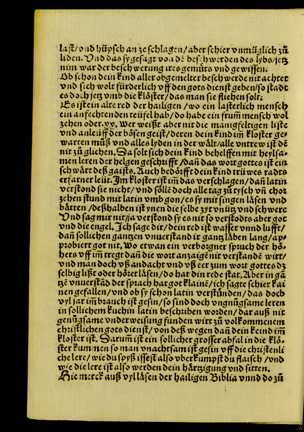 last/ vnd hüpsch an zeschlagen/ aber schier vnmüglich zů
liden. Vnd das sygesagt võ dē beschwerden des lybs/ yetz
nim war der beschwerung ires gemüts vnd gewissen.
Ob schon dein kind aller obgemelter beschwerde nit achtet
vnd sich wolt fürderlich vff den gots dienst geben/ so stadt
es doch yetz vnd die klöster/ das man sie fliehen solt.
Es ist ein alte red der hailigen/ wo ein lasterlich mensch
ein anfechten den teüfel hab/ do habe ein frum̃ mensch wol
zehen oder .xx. Wer weißt aber nit die manigfeltigen liste
vnd anleüff der bösen geist/ deren dein kind im̃ kloster ge
warten můß vnd alles lyden in der wält/ alle vntrew ist dē
nit zů glichen. Sa solt sich dein kind behelffen mit heylsa
men leren der helgen geschrifft/ dañ das wort gottes ist ein
schwärt deß gaists. Auch bedörfft dein kind trüwes radts
erfarner leüt. Im kloster ist im̃ das verschlagen/ dañ latin
verstond sie nicht/ vnd söllē doch alle tag zů ryseh vñ chor
zehen stund mit latin vmb gon/ es sy mit singen läsen vnd
bätten/ deßhalben ist ynen die selbe zyt vnütz vnd schwere
Vnd sag mir nit/ ja verstond sy es nit so verstodts aber got
vnd die engel. Ich sage dir/ dein red ist wasser vnnd lufft/
dañ sollichen gantzen vnuerstand ir gantz läben lang/ ap/
probiert got nit. Wo etwan ein verborgner spruch der hö
hers vff im̃ tregt dañ die wort anzaigē nit verstandē wirt/
vnd man doch vß andacht vnd vß eer zum wort gottes dz
selbig lißt oder höret läsen/ do hat din rede stat. Aber in gā
tzē vnuerstād der sprach hat got klainē/ ich sagte schier kai
nen gefallen/ vnd ob sy schon latin verstünden/ das doch
vyl jar im̃ brauch ist gesin/ so sind doch vngnůgsame leren
in sollichem kuchin latin beschriben worden/ dar auß nit
genůgsame vnderweisung funden wirt zů volkommenem
christlichen gots dienst/ von deß wegen dañ dein kend im̃
kloster ist. Sarum̃ ist ein sollicher grosser abfal in die klö/
ster kum̃men so man vnachtsam ist gesin vff die christenli
che lere/ wie du spyß issest also vberkumpst du flaisch/ vnd
wie die lere ist also werden dein härtzigung vnd sitten.
Hie merck auß vyl läsen der hailigen Biblia vnnd do zů